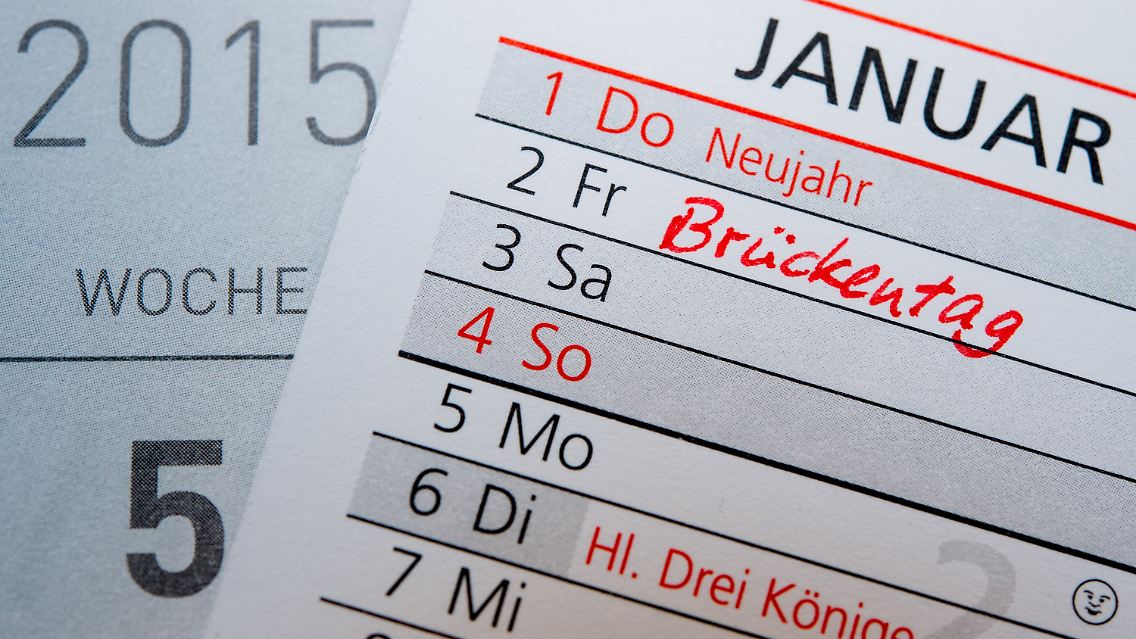 2015
WOCHE
5
JANUAR
1 Do Neujahr
2 Fr Brückentag
3 Sa
4 So
5 Mo
2
6 Di Hl. Drei Könige
7 Mi